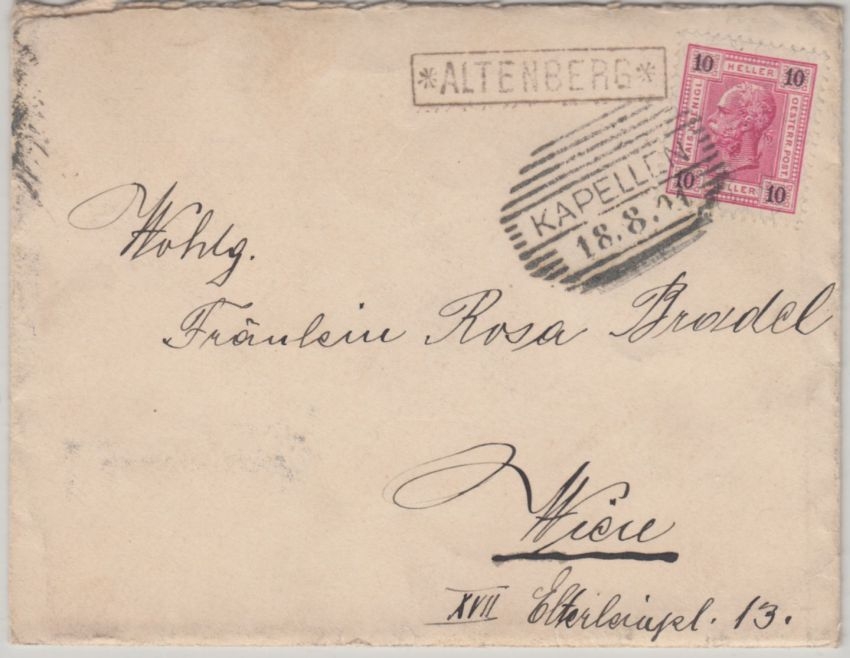 *ALTENBERG*
10 HELLER 10
KAIS. KÖNIGL.
OESTERR. POST.
10 HELLER 10
KAPELLEN
18.8.
Wohlg.
Fräulein Rosa Bradel
Wien
XVII Elterleinpl. 13.